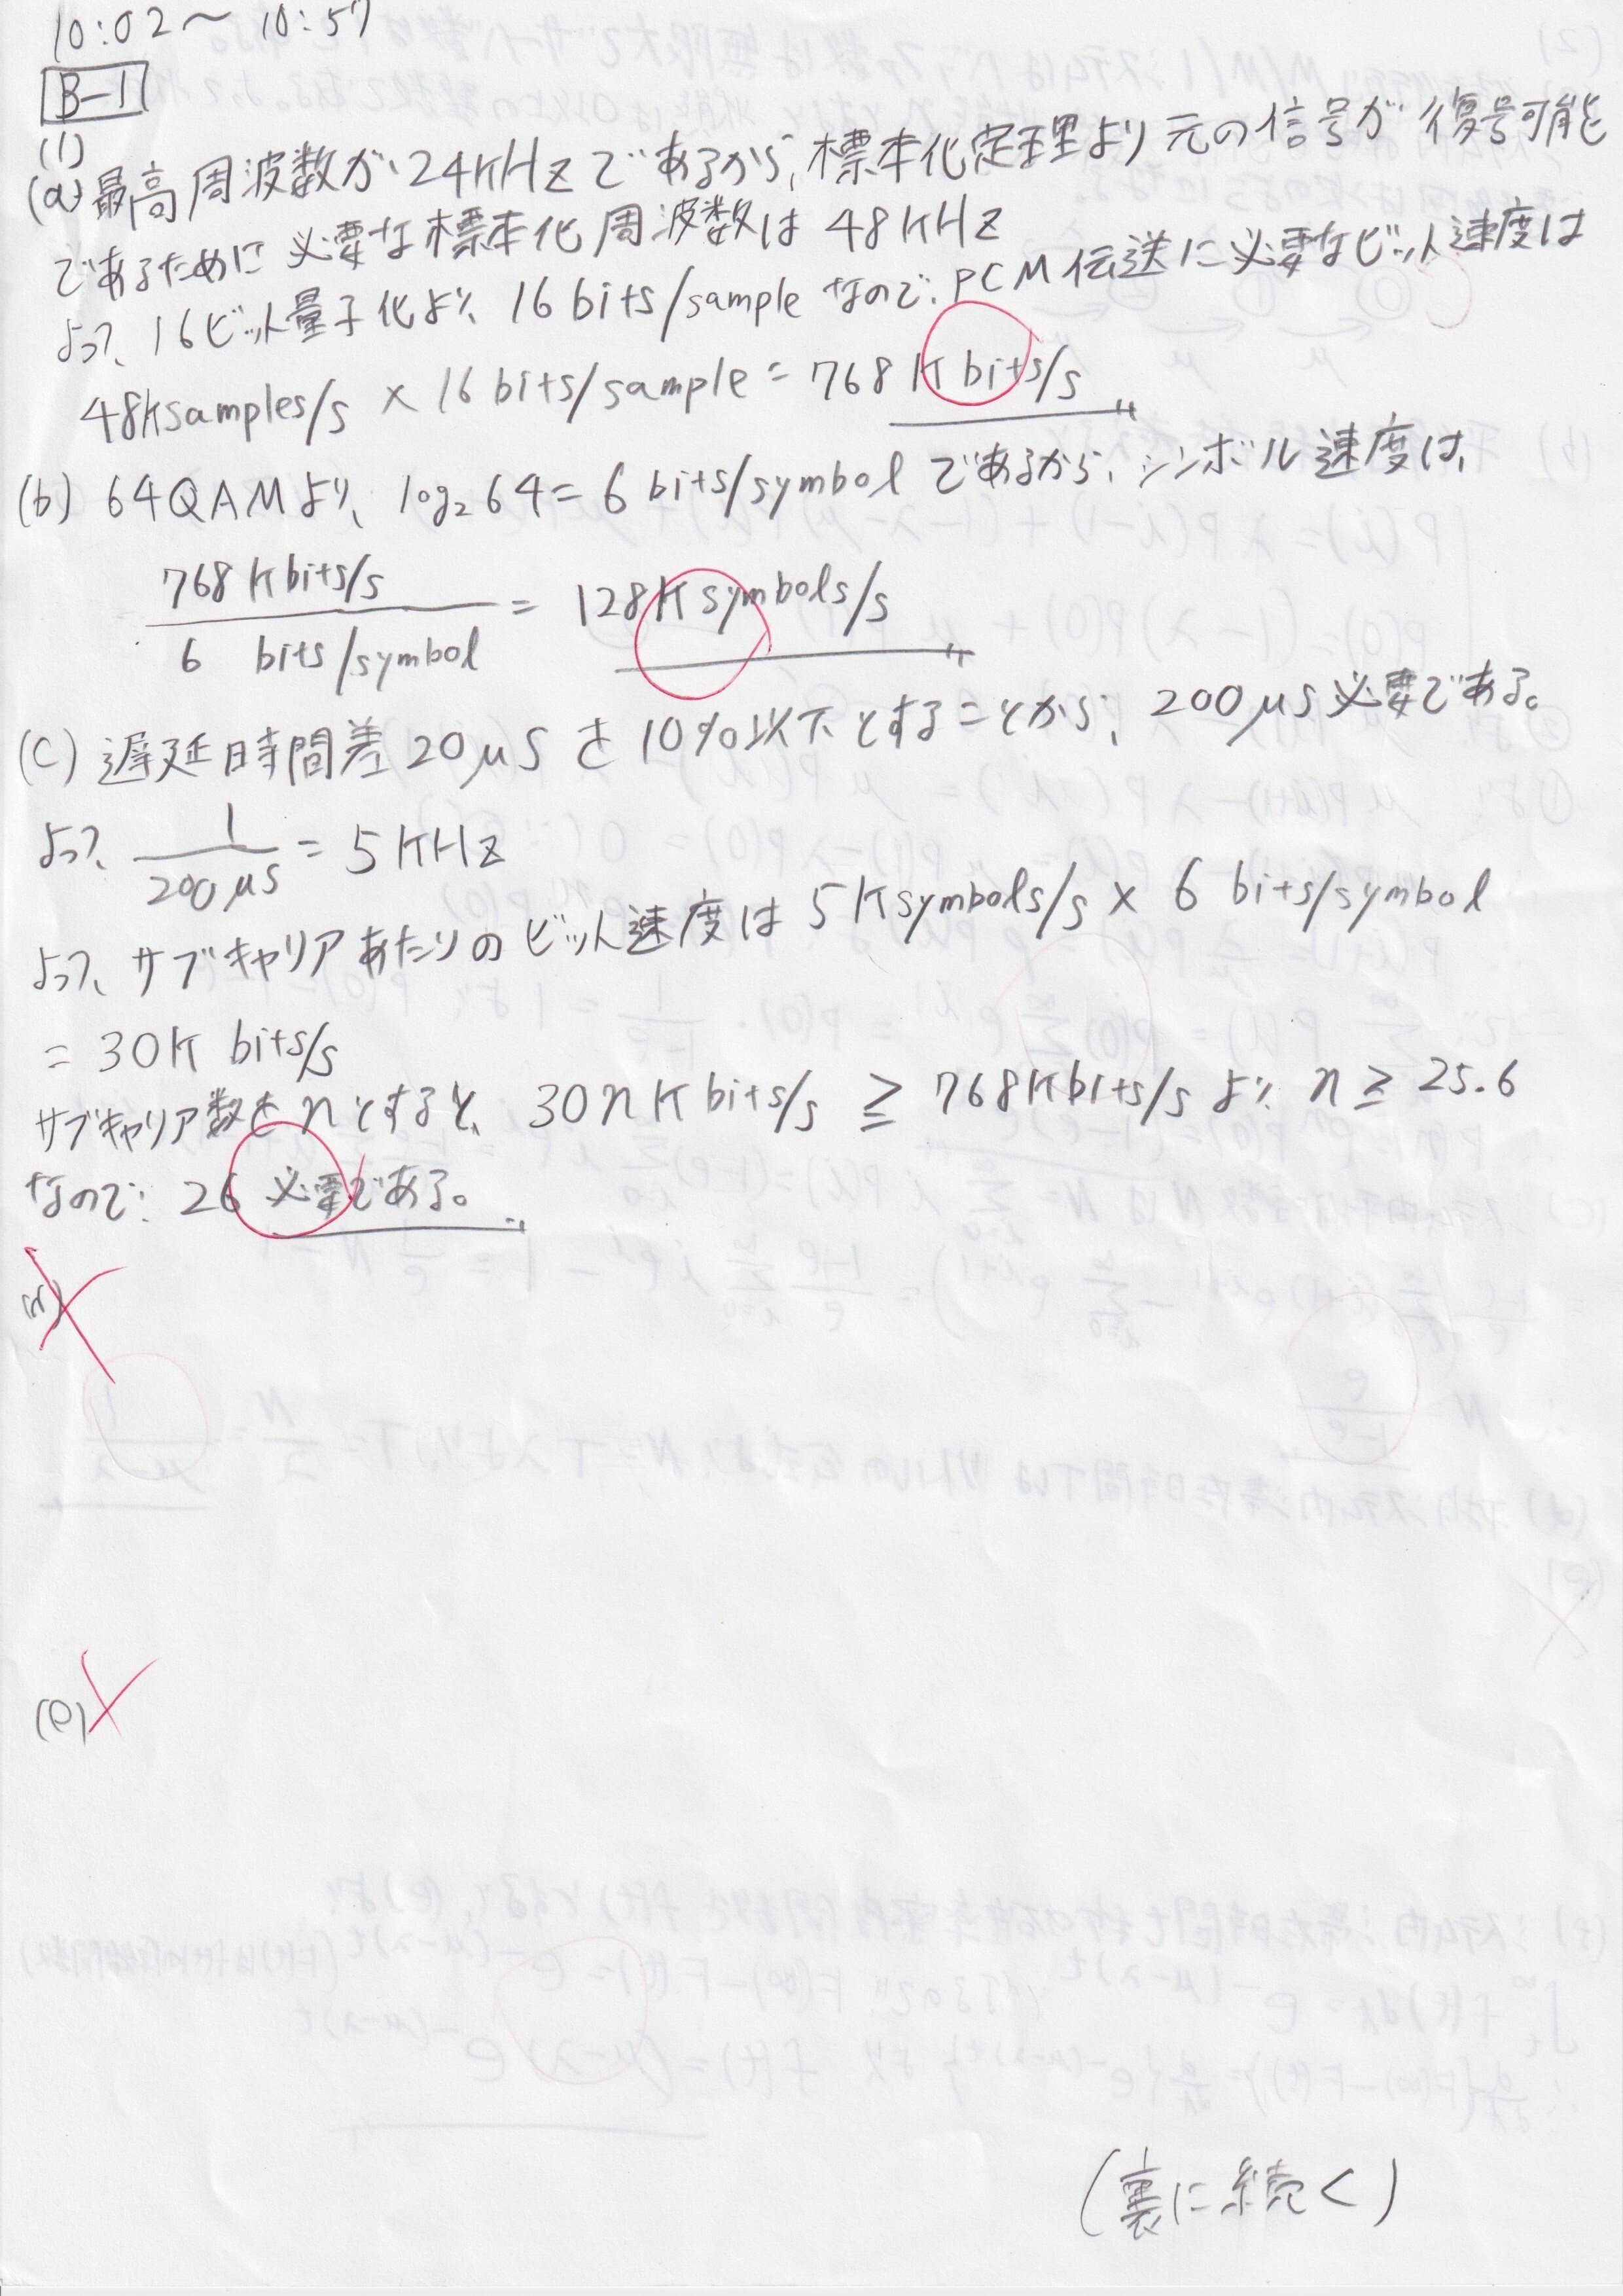 10:02～10:57
B-1
(1)
(a) 最高周波数が24KHzであるから、標本化定理より元の信号が復号可能
であるために必要な標本化周波数は 48KHz
よって、16ビット量子化より、16 bits/sample なので、PCM伝送に必要なビット速度は
48Ksamples/s × 16 bits/sample = 768 K bits/s
(b) 64QAMより、log₂64 = 6 bits/symbol であるから、シンボル速度は、
768 K bits/s / 6 bits/symbol = 128K symbols/s
(c) 遅延時間差 20μs を 10%以下とすることから、200μs必要である。
よって、1/200μs = 5KHz
よって、サブキャリアあたりのビット速度は 5Ksymbols/s × 6 bits/symbol
= 30K bits/s
サブキャリア数をnとすると、30nK bits/s ≧ 768Kbits/s より、n ≧ 25.6
なので、26 必要である。
(d)
(e)
(裏に続く)